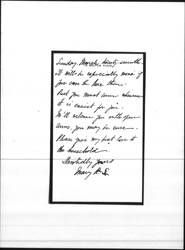 Sunday March twenty seventh.
It will be especially nice if
you can be here then.
But you must come whenever
it is easiest for you.
We'll welcome you with open
arms, you may be sure.
Please give my best love to
the household.
Devotedly yours
Mary